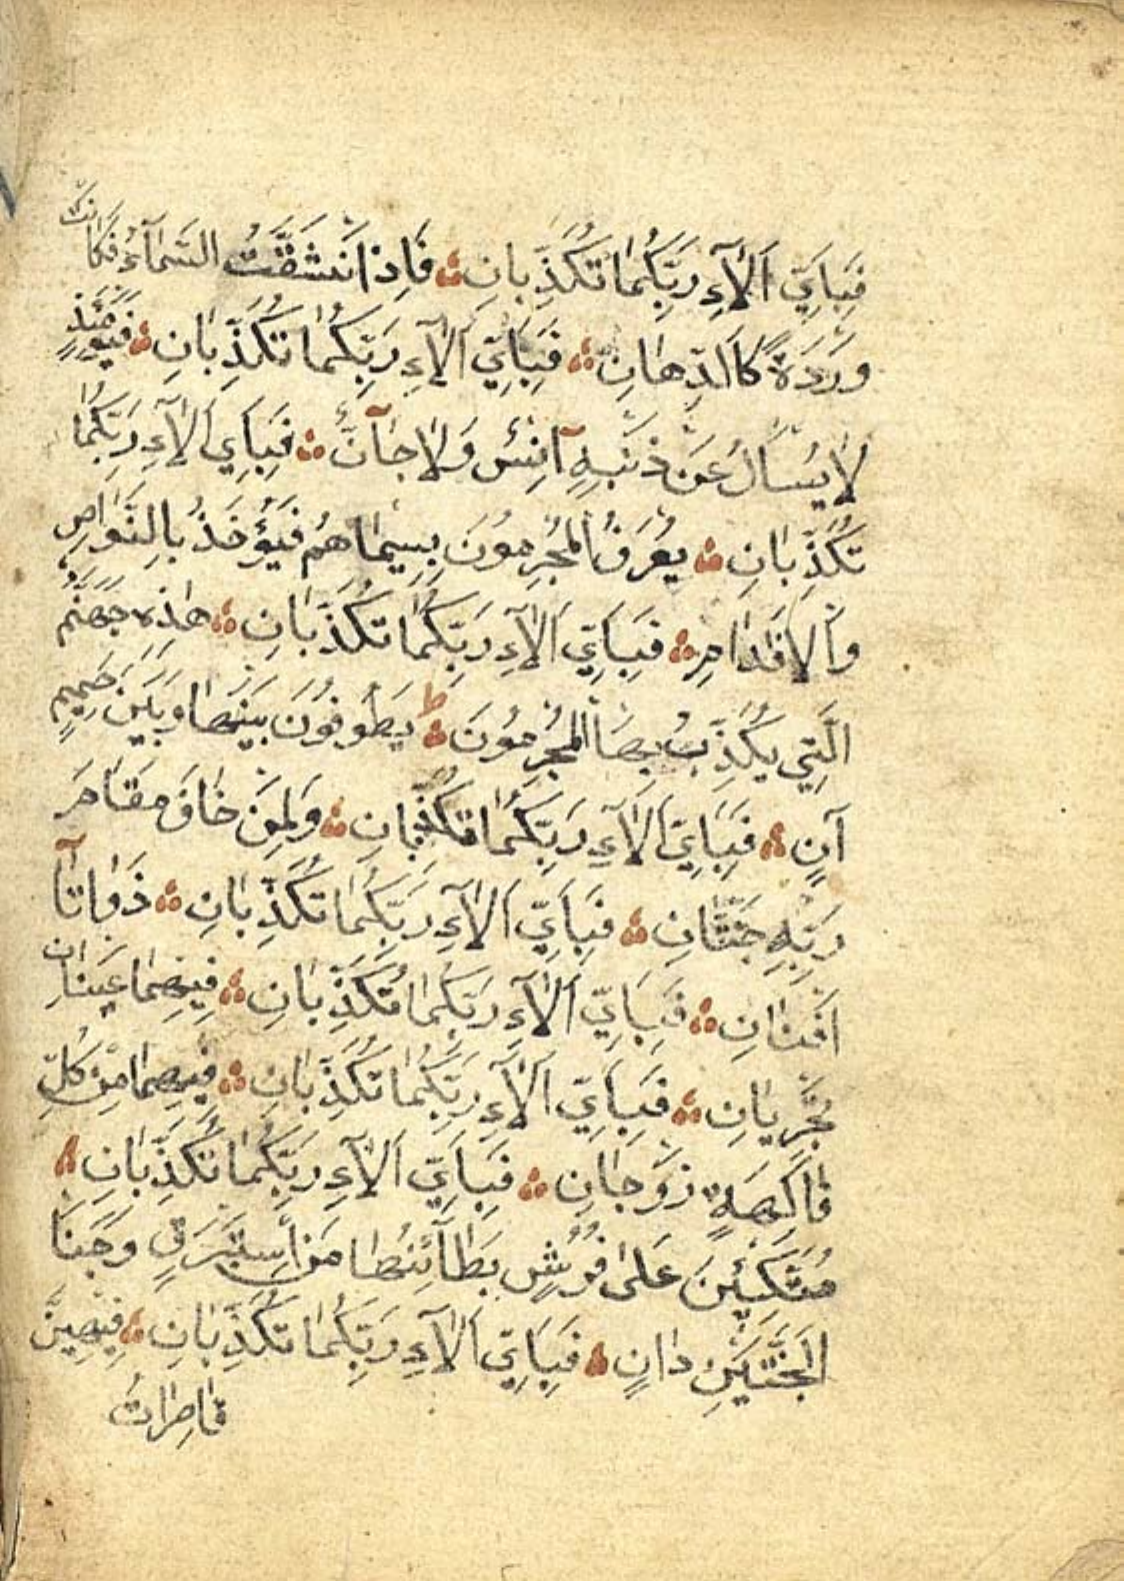 فَبِاَيِّ اَلَآءِ رَبِّكُمَا تُكَذِّبَانِ فَاِذَا انْشَقَّتِ السَّمَآءُ فَكَانَتْ
وَرْدَةً كَالدِّهَانِ فَبِاَيِّ اَلَآءِ رَبِّكُمَا تُكَذِّبَانِ فَيَوْمَئِذٍ
لَا يُسْاَلُ عَنْ ذَنْبِهِ اِنْسٌ وَلَا جَآنٌّ فَبِاَيِّ اَلَآءِ رَبِّكُمَا
تُكَذِّبَانِ يُعْرَفُ الْمُجْرِمُونَ بِسِيمَاهُمْ فَيُؤْخَذُ بِالنَّوَاصِي
وَالْاَقْدَامِ فَبِاَيِّ اَلَآءِ رَبِّكُمَا تُكَذِّبَانِ هٰذِهِ جَهَنَّمُ
الَّتِي يُكَذِّبُ بِهَا الْمُجْرِمُونَ يَطُوفُونَ بَيْنَهَا وَبَيْنَ حَمِيمٍ
آنٍ فَبِاَيِّ اَلَآءِ رَبِّكُمَا تُكَذِّبَانِ وَلِمَنْ خَافَ مَقَامَ
رَبِّهِ جَنَّتَانِ فَبِاَيِّ اَلَآءِ رَبِّكُمَا تُكَذِّبَانِ ذَوَاتَآ
اَفْنَانٍ فَبِاَيِّ اَلَآءِ رَبِّكُمَا تُكَذِّبَانِ فِيهِمَا عَيْنَانِ
تَجْرِيَانِ فَبِاَيِّ اَلَآءِ رَبِّكُمَا تُكَذِّبَانِ فِيهِمَا مِنْ كُلِّ
فَاكِهَةٍ زَوْجَانِ فَبِاَيِّ اَلَآءِ رَبِّكُمَا تُكَذِّبَانِ
مُتَّكِئِينَ عَلٰى فُرُشٍ بَطَآئِنُهَا مِنْ اِسْتَبْرَقٍ وَجَنَا
الْجَنَّتَيْنِ دَانٍ فَبِاَيِّ اَلَآءِ رَبِّكُمَا تُكَذِّبَانِ فِيهِنَّ
قَاصِرَاتُ